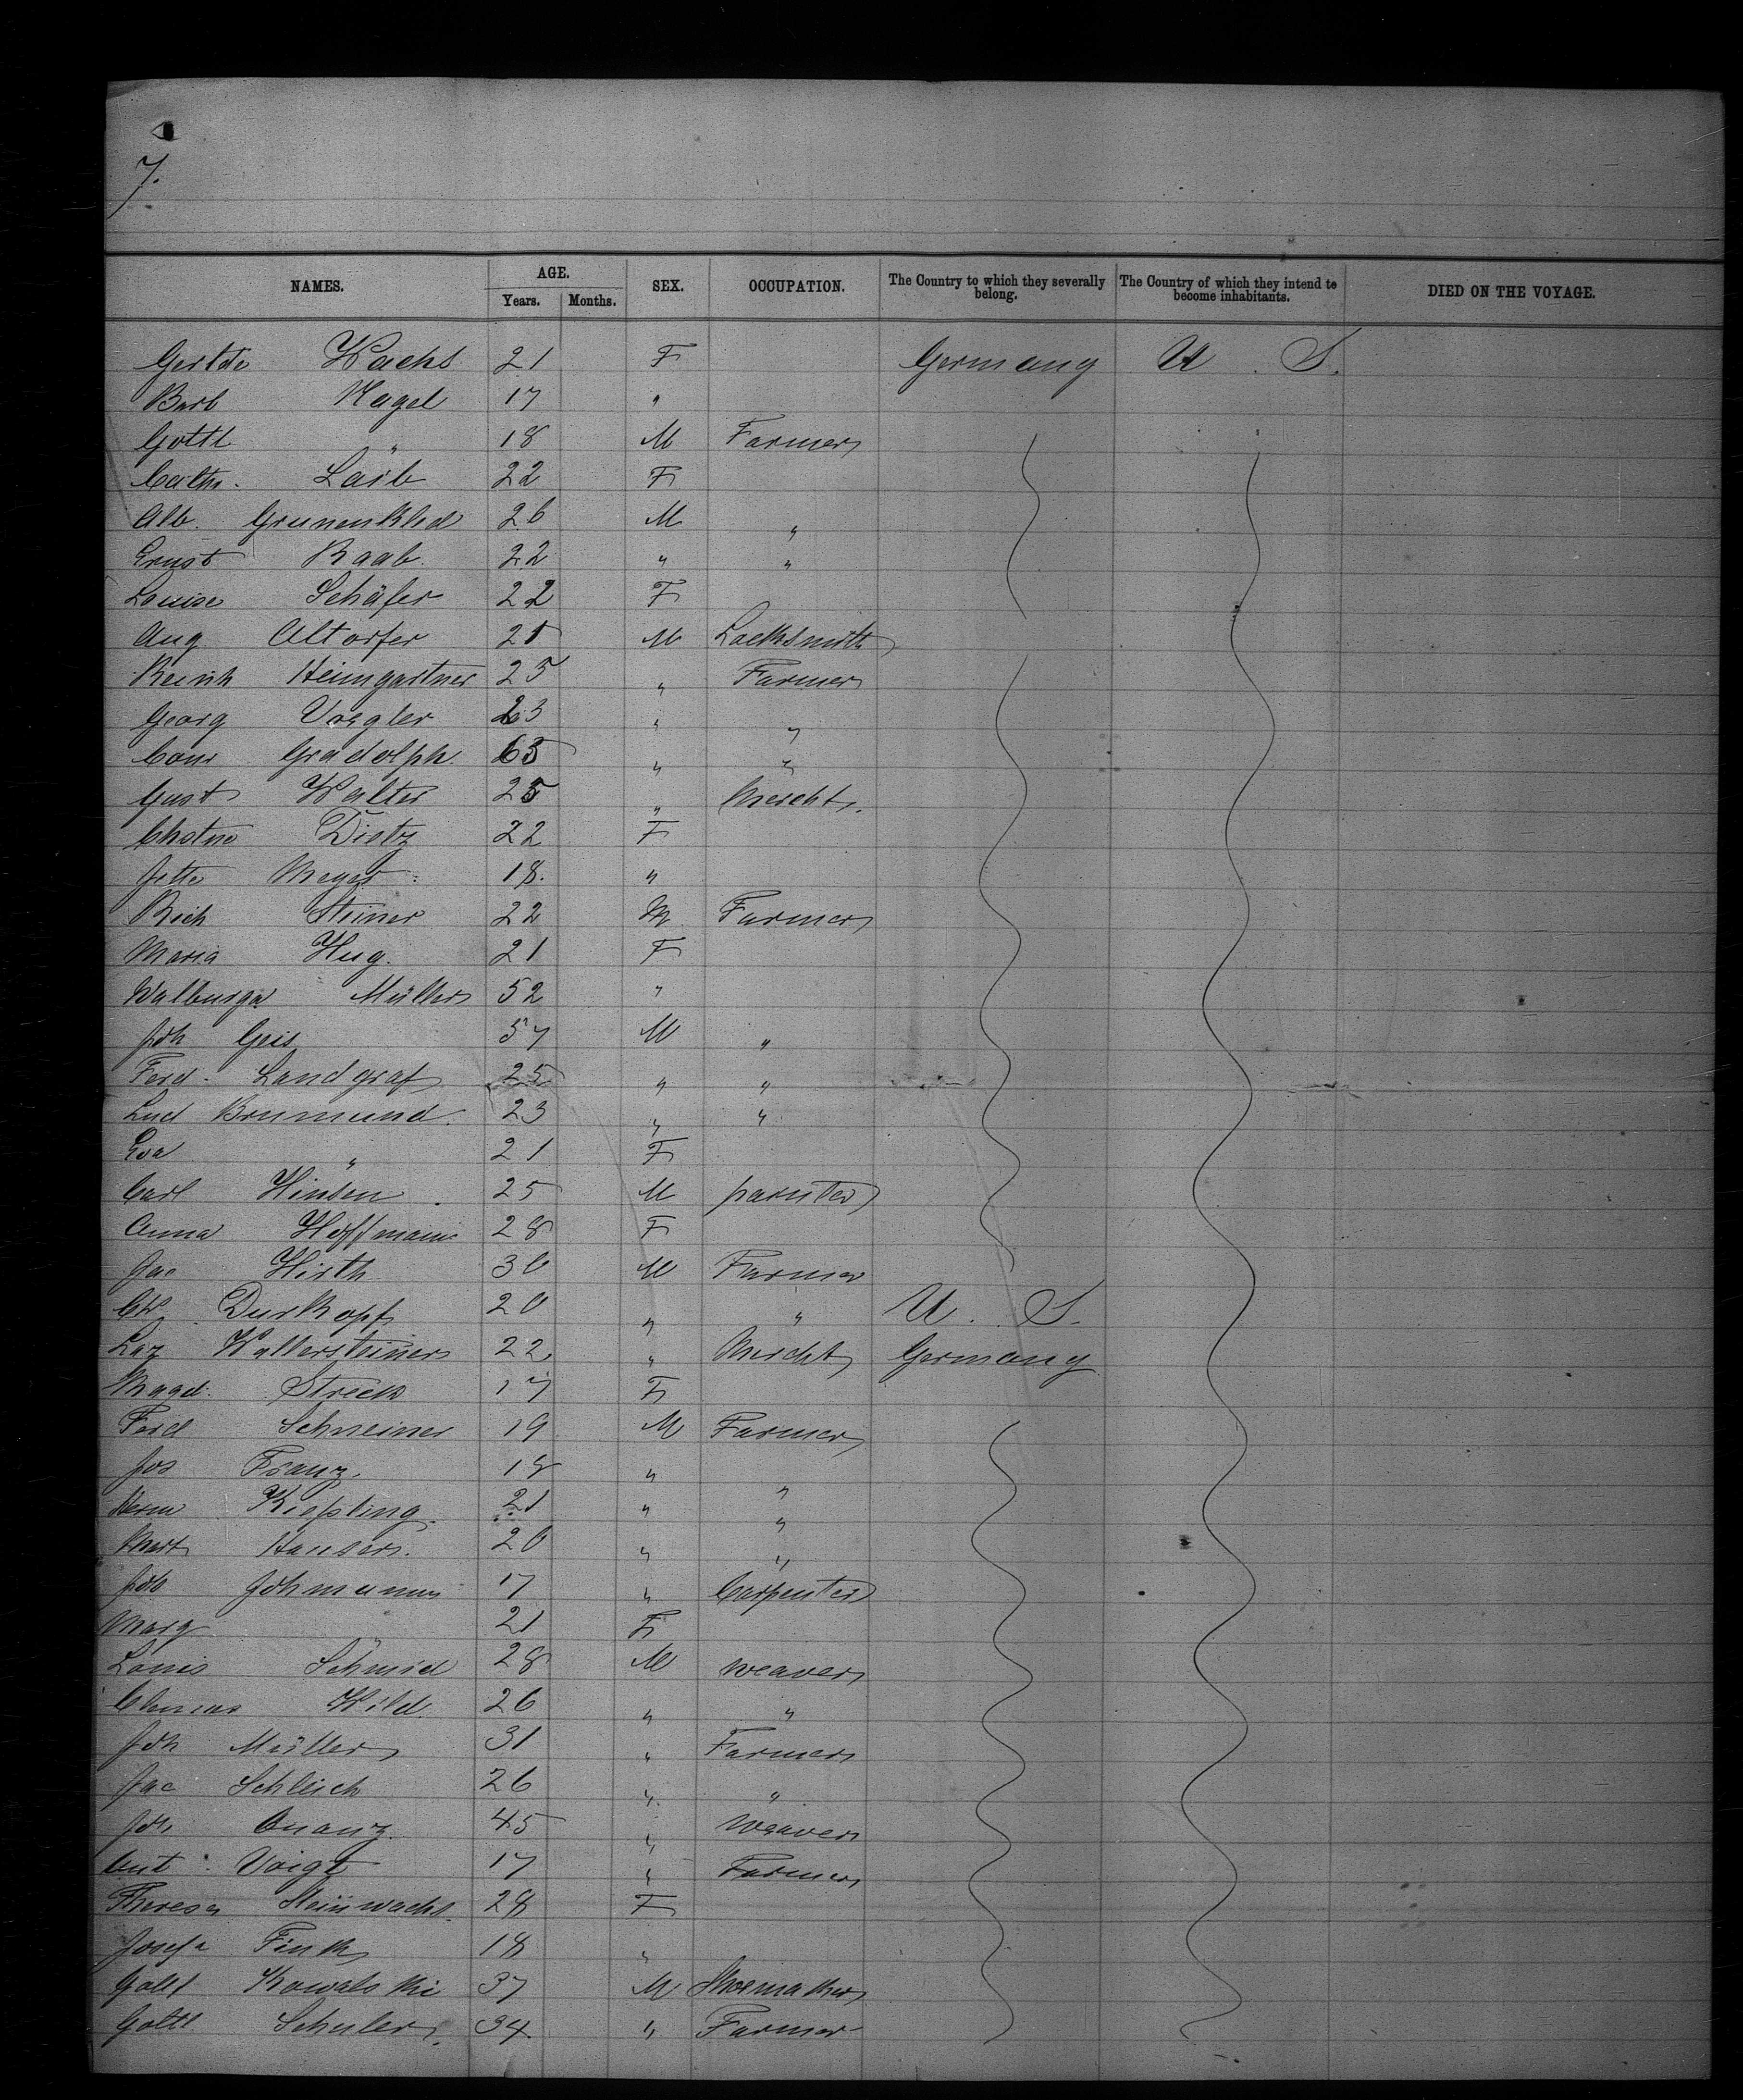 7.
NAMES. AGE. Years. Months. SEX. OCCUPATION. The Country to which they severally belong. The Country of which they intend to become inhabitants. DIED ON THE VOYAGE.
Wachs 21 F Germany U. S.
Barb Nagel 17 "
Gottl " 18 M Farmer
Cath. Laib 22 F
Alb. 26 M "
Ernst Raab. 22 " "
Louise Schäfer 22 F
Aug Altorfer 25 M Locksmith
Reinh Heimgartner 25 " Farmer
Georg Voegler 23 " "
Conr Gradolph. 65 " "
Gust Walter 25 " Mercht.
Chstne Dietz 22 F
Jette Meyer 18. "
Rich Steiner 22 M Farmer
Maria Hug. 21 F
Walburga Müller 52 "
Joh Geis 57 M "
Ferd. Landgraf 25 " "
Lud Brumund. 23 " "
Eva " 21 F
Carl Hinsen 25 M painter
Anna Hoffmann 28 F
Jac Hirth 30 M Farmer
Ch. Durkopf 20 " " U. S.
Laz Wallersteiner 22 " Mercht Germany
Magd. Streck 17 F
Ferd Schreiner 19 M Farmer
Jos Franz. 18 " "
Herm Kießling. 21 " "
Mart Hauser. 20 " "
Job Johmann 17 " Carpenter
Marg " 21 F
Louis Schmid 28 M weaver
Wild. 26 " "
Joh Müller 31 " Farmer
Jac Schleich 26 " "
Joh Quanz. 45 " Weaver
Ant. Voigt 17 " Farmer
Theresa Steinwachs. 28 F
Josefa Fink 18 "
Gottl Kowalski 37 M Shoemaker
Gottl Schuler. 34. " Farmer